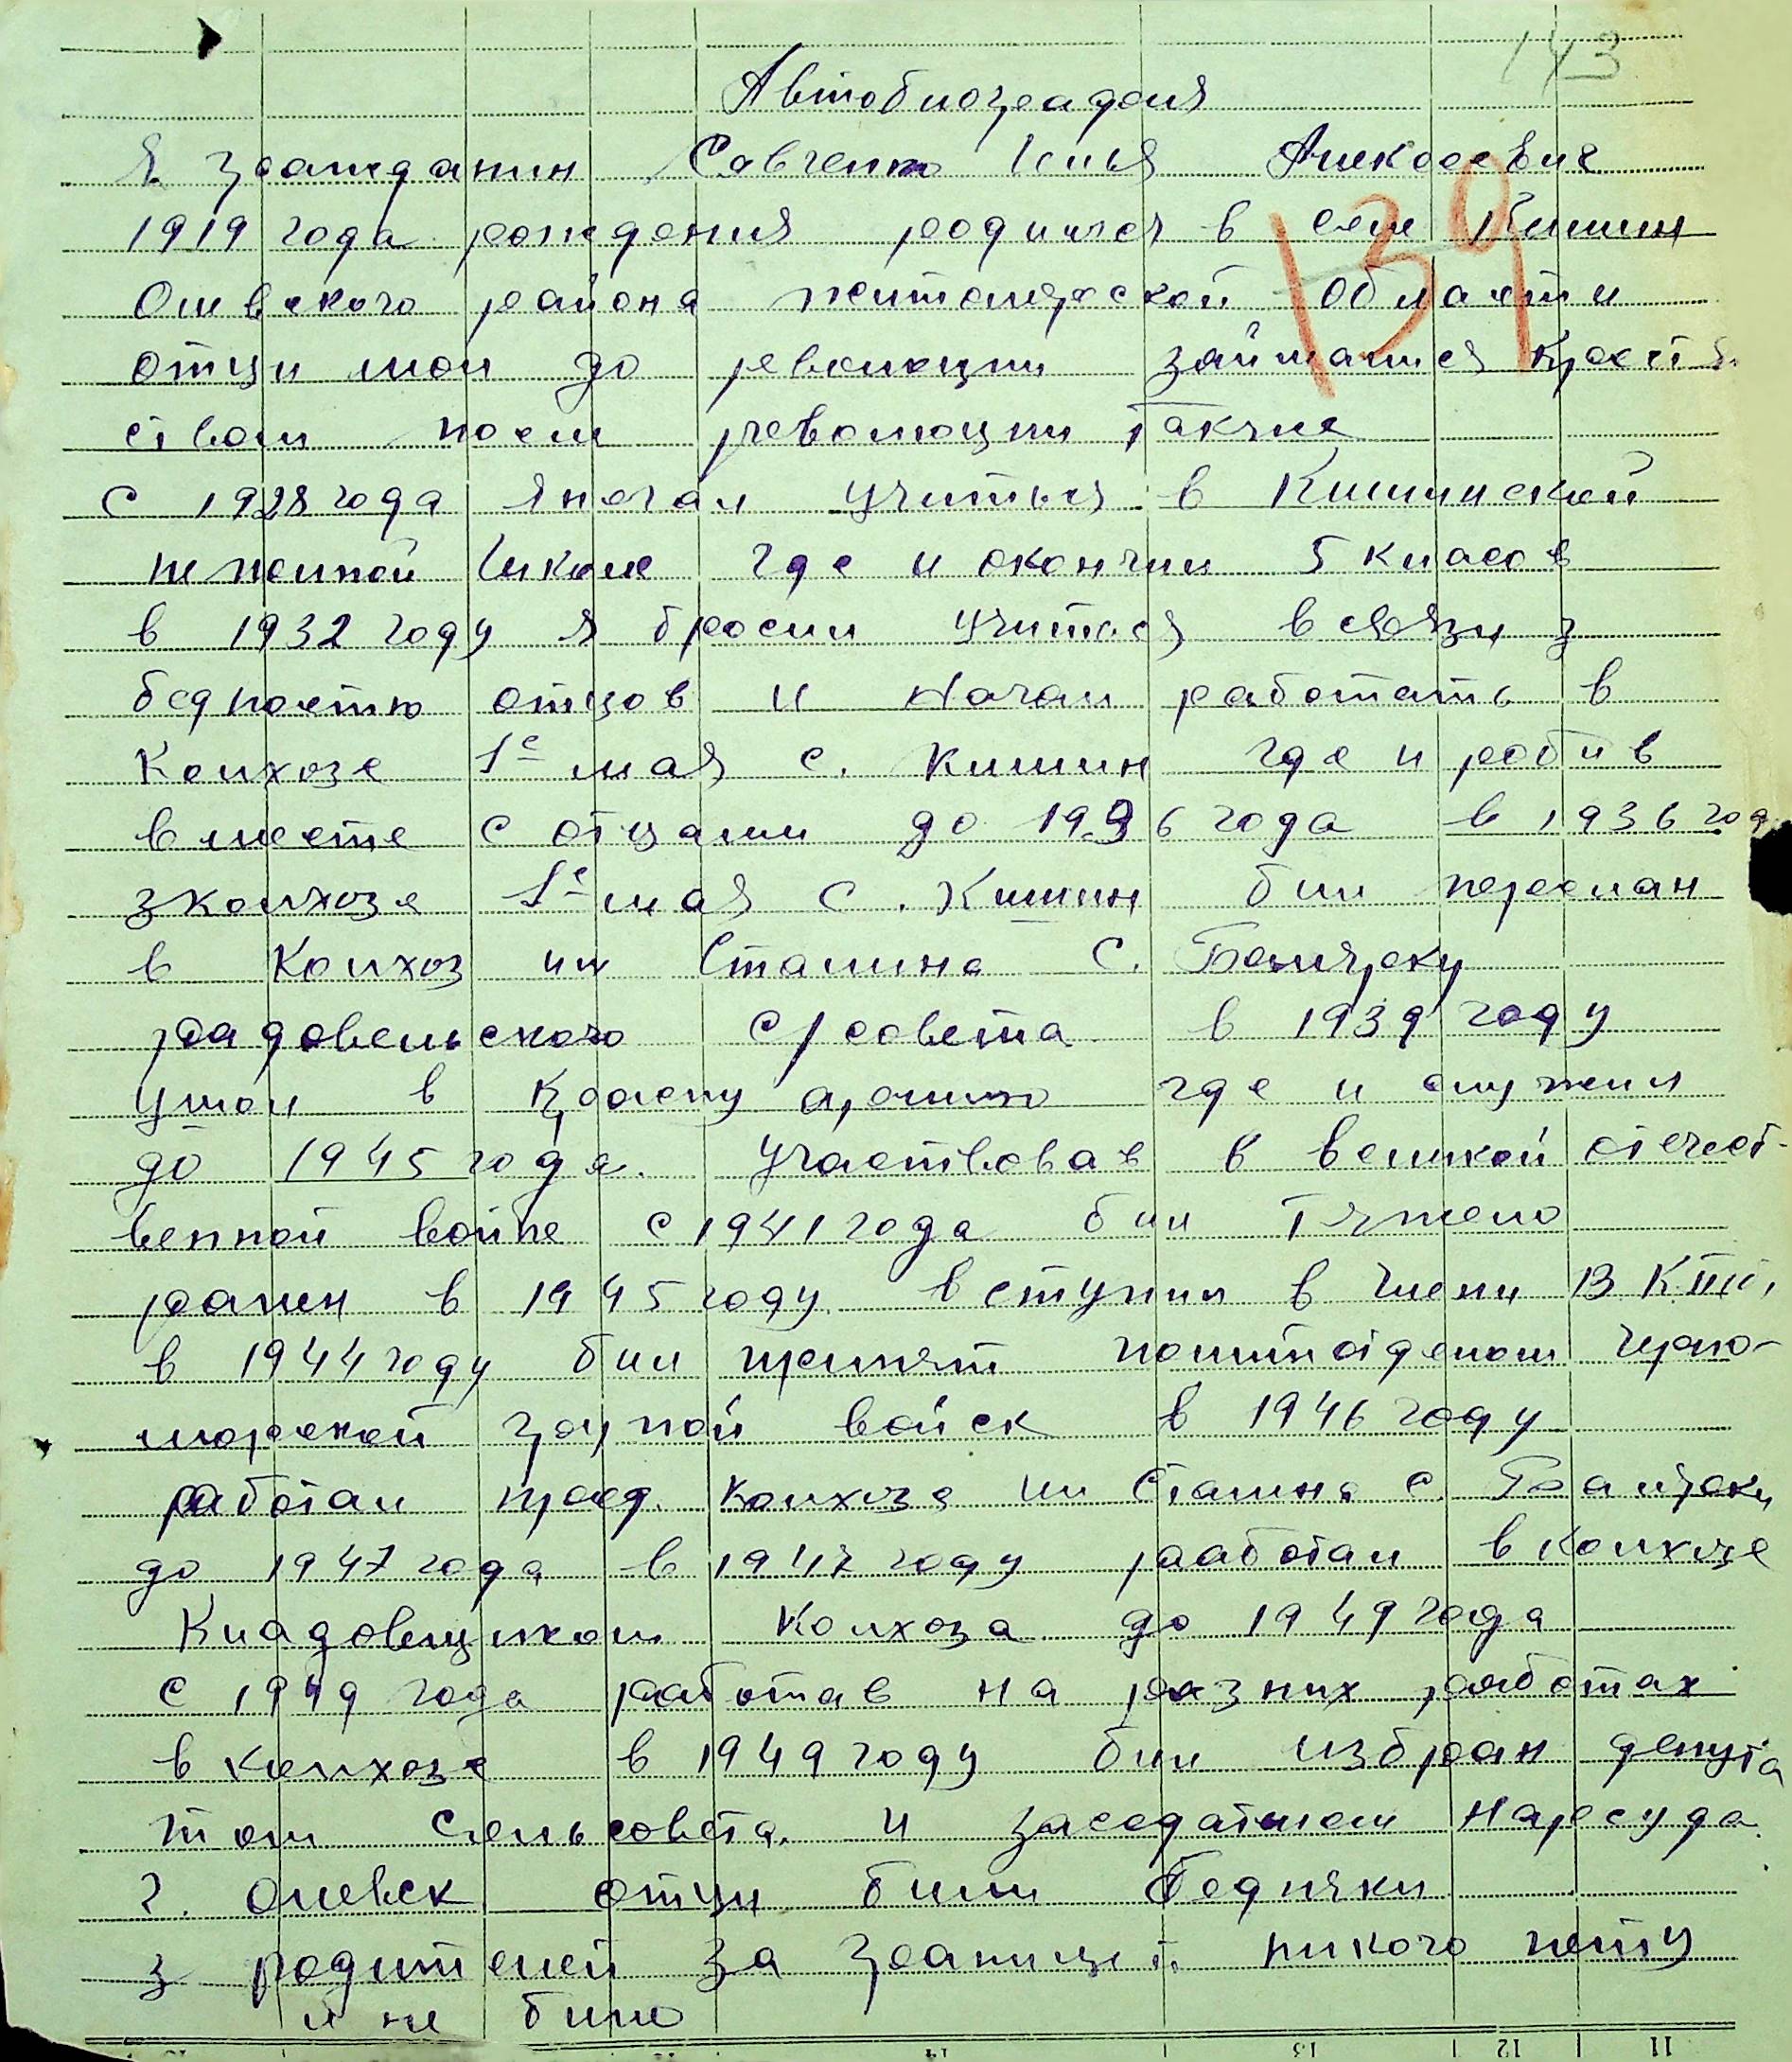 143
Автобиография
Я гражданин Савченко Илья Алексеевич
139
1919 года рождения родился в селе Кишин
Олевского района житомирской области
отци мои до революции займалися крест
ством посля революции также
С 1928 года я начал учиться в Кишинской
не полной школе где и окончил 5 класов
в 1932 году я бросил учится в связи з
бедностю отцов и начал работать в
Колхозе 1е мая с. Кишин где и робив
в месте с отцами до 1936 года в 1936 год
з колхоза 1е мая с. Кишин бил переслан
в Колхоз им Сталина С. Балярку
радовельского с/совета в 1939 году
ушол в Красну армию где и служил
до 1945 года. Участвовав в великой отечест-
венной войне с 1941 года бил тяжело
ранен в 1945 году. вступил в члени ВКПб,
в 1944 году бил принят политотделом черно-
морской групой войск в 1946 году
работал пред. колхоза им Сталина с. Балярки
до 1947 года в 1947 году работал в колхозе
Кладовщиком колхоза до 1949 года
с 1949 года работав на разних работах
в колхозе в 1949 году бил избран депута
том сельсовета. и заседателем Нарсуда.
г. Олевск отци били бедняки
з родителей за границей никого нету
и не било
11
12
13
14